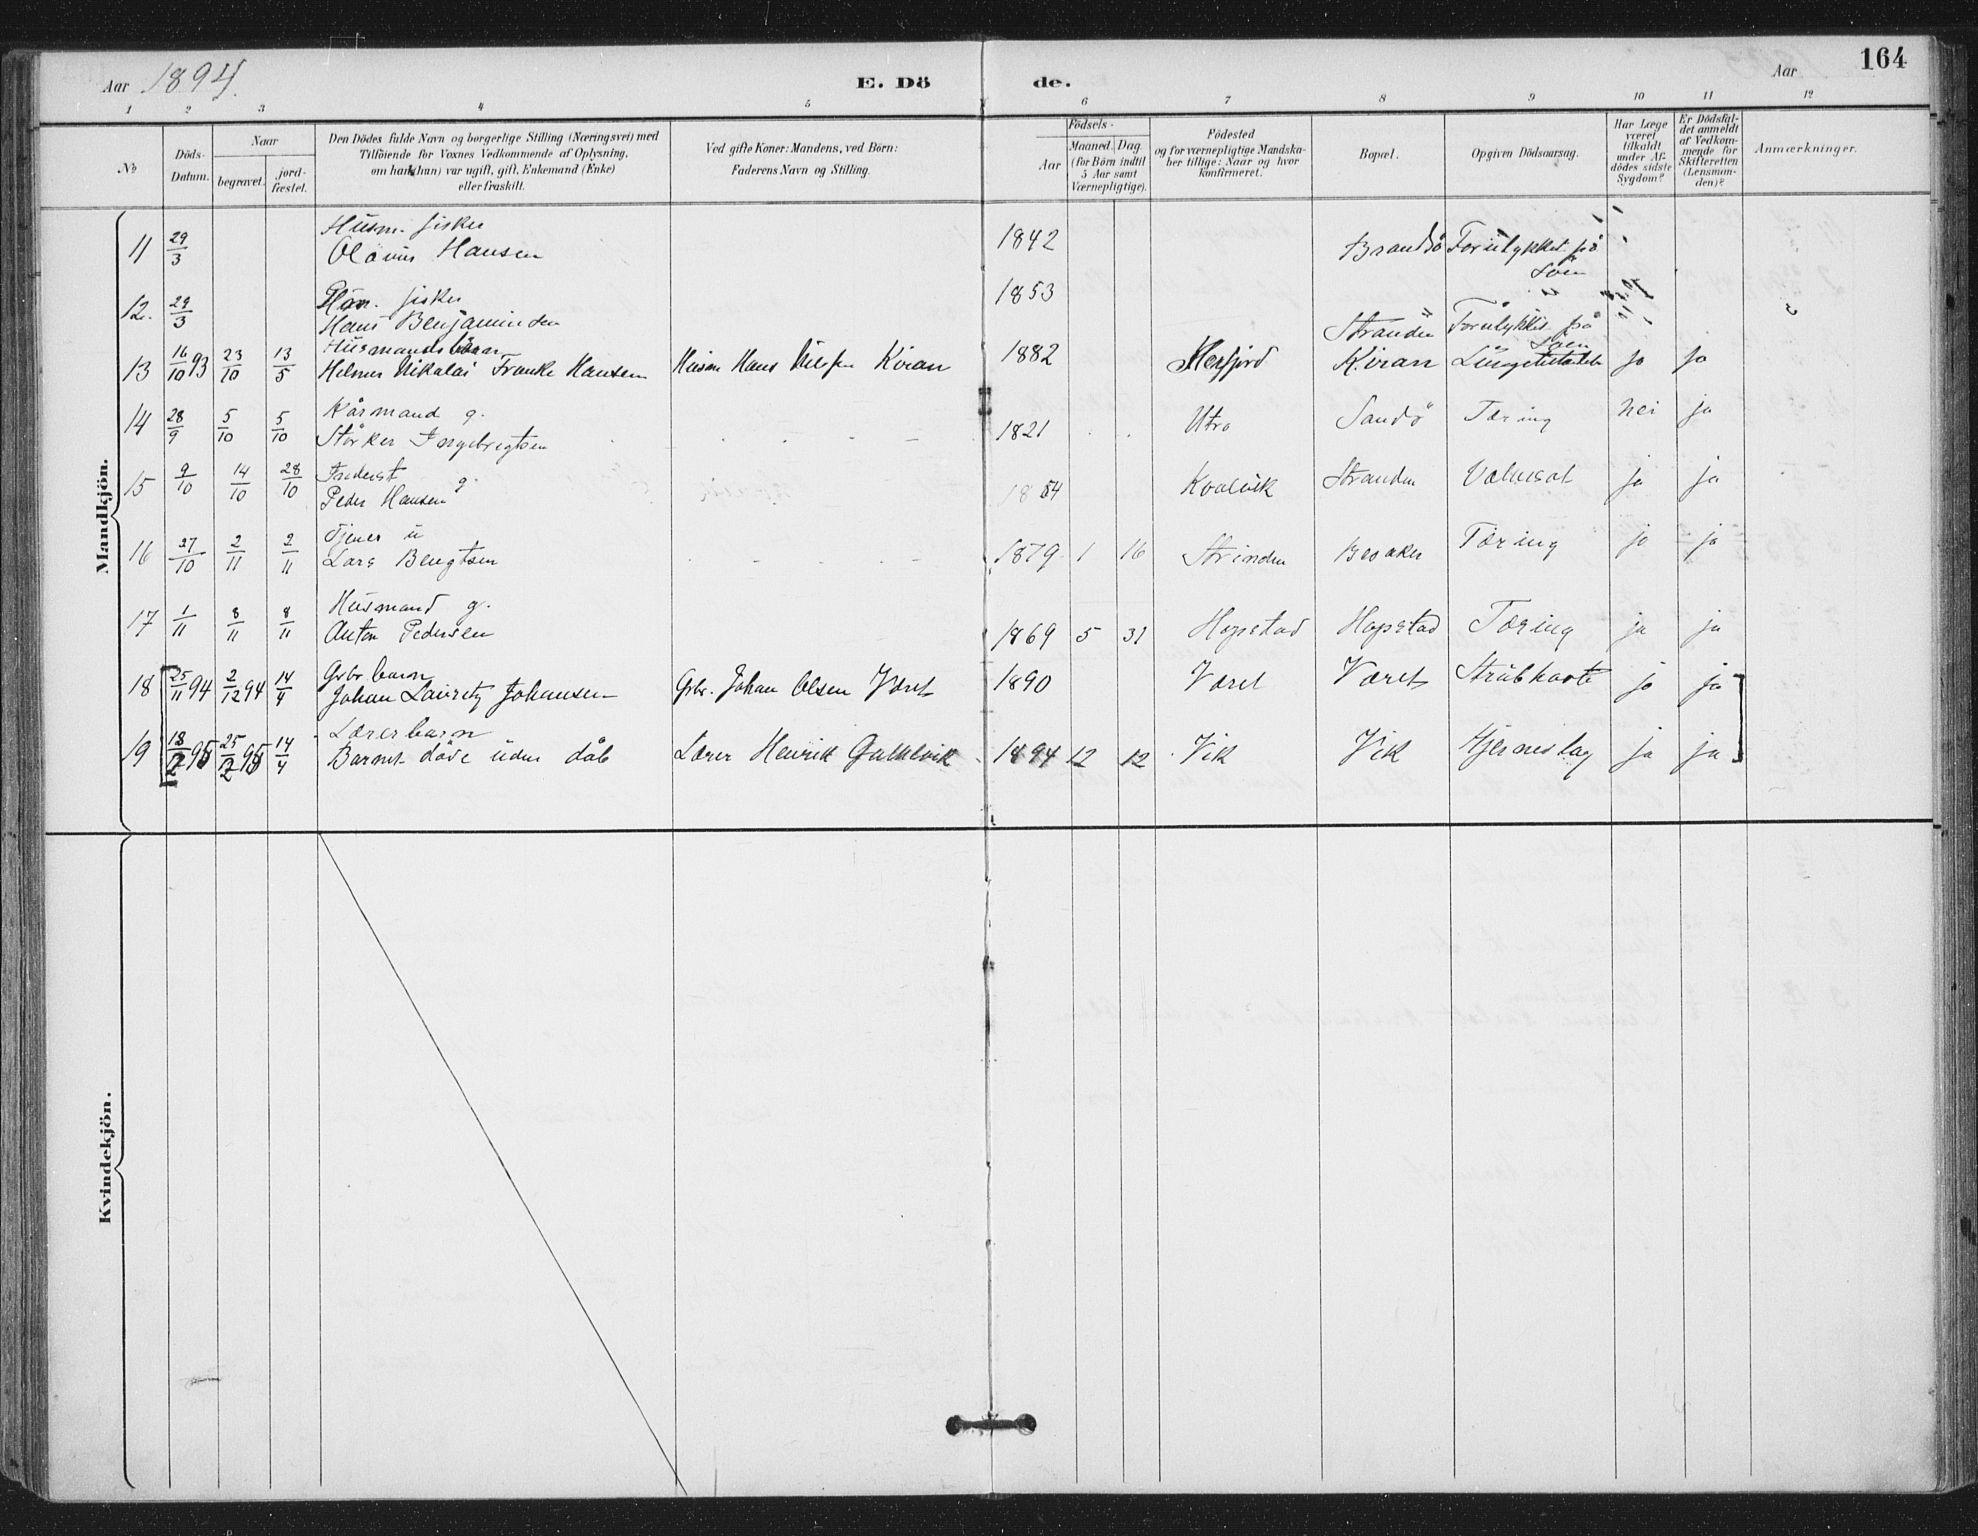 Aar 1894.
E. Dö
de.
Aar
164
1 2 3 4 5 6 7 8 9 10 11 12
№
Döds-Datum.
Naar
begravet.
jord-fæstet.
Den Dödes fulde Navn og borgerlige Stilling (Næringsvei) med
Tilföiende for Voxnes Vedkommende af Oplysning,
om han (hun) var ugift, gift, Enkemand (Enke)
eller fraskilt.
Ved gifte Koner: Mandens, ved Börn:
Faderens Navn og Stilling.
Födsels-
Aar
Maaned. Dag.
(for Börn indtil
5 Aar samt
Værnepligtige).
Födested
og for værnepligtige Mandska-
ber tillige: Naar og hvor
konfirmeret.
Bopæl.
Opgiven Dödsaarsag.
Har Læge
været
tilkaldt
under Af-
dödes sidste
Sygdom?
Er Dödsfal-
det anmeldt
af Vedkom-
mende for
Skifteretten
(Lensman-
den)?
Anmærkninger.
Mandkjön.
11 29/3 Husm. fisker
Olavus Hansen 1842 Brandsö Forulykket på Soen
12. 29/3 fisker
Hans Benjaminsen 1853 Stranden Forulykket på Soen
13 16/10 93 23/10 13/5 Husmandsbarn
Helmer Nikolai Franke Hansen Husm Hans Nilsen Kiran 1882 Hesfjord Kiran ja ja
14 28/9 5/10 5/10 Kårmand g.
Stårker Ingebrigtsen 1821 Utro Sandö Tæring nei ja
15 9/10 14/10 28/10 Inderst g.
Peder Hansen 1854 Kvalvik Stranden ja ja
16 27/10 2/11 2/11 Tjener u
Lars Bengtsen 1879 1 16 Strinden Besaker Tæring ja ja
17 1/11 8/11 8/11 Husmand g.
Anton Pedersen 1869 5 31 Hopstad Hopstad Tæring ja ja
18 25/11 94 2/12 94 14/4 Gbr barn
Johan Lauritz Johansen Gbr. Johan Olsen Været 1890 Været Været Strubhoste ja ja
19 18/12 95 25/12 95 14/4 Lærerbarn
Barnet döde uden dåb Lærer Henrik 1894 12 12 Vik Vik Hjerneslag ja ja
Kvindekjön.